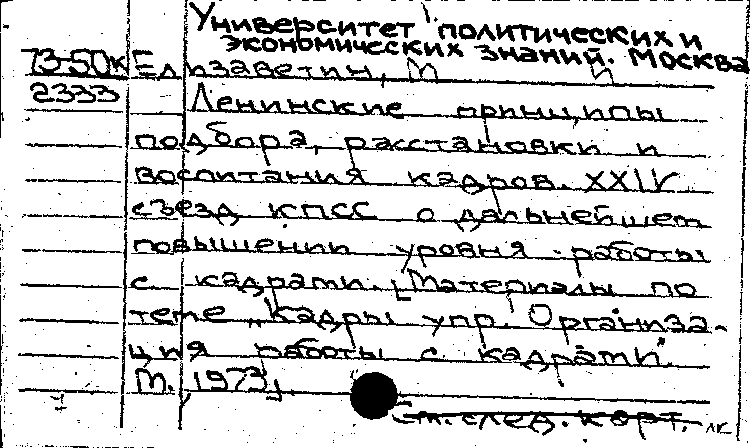 Университет политических и
экономических знаний. Москва
73-50к Елизаветин, М
2333 Ленинские принципы
подбора, расстановки и
воспитания кадров. XXIV
съезд КПСС о дальнейшем
повышении уровня работы
с кадрами. [Материалы по
теме „Кадры упр. Организа-
ция работы с кадрами".
М., 1973]
См. след. карт.